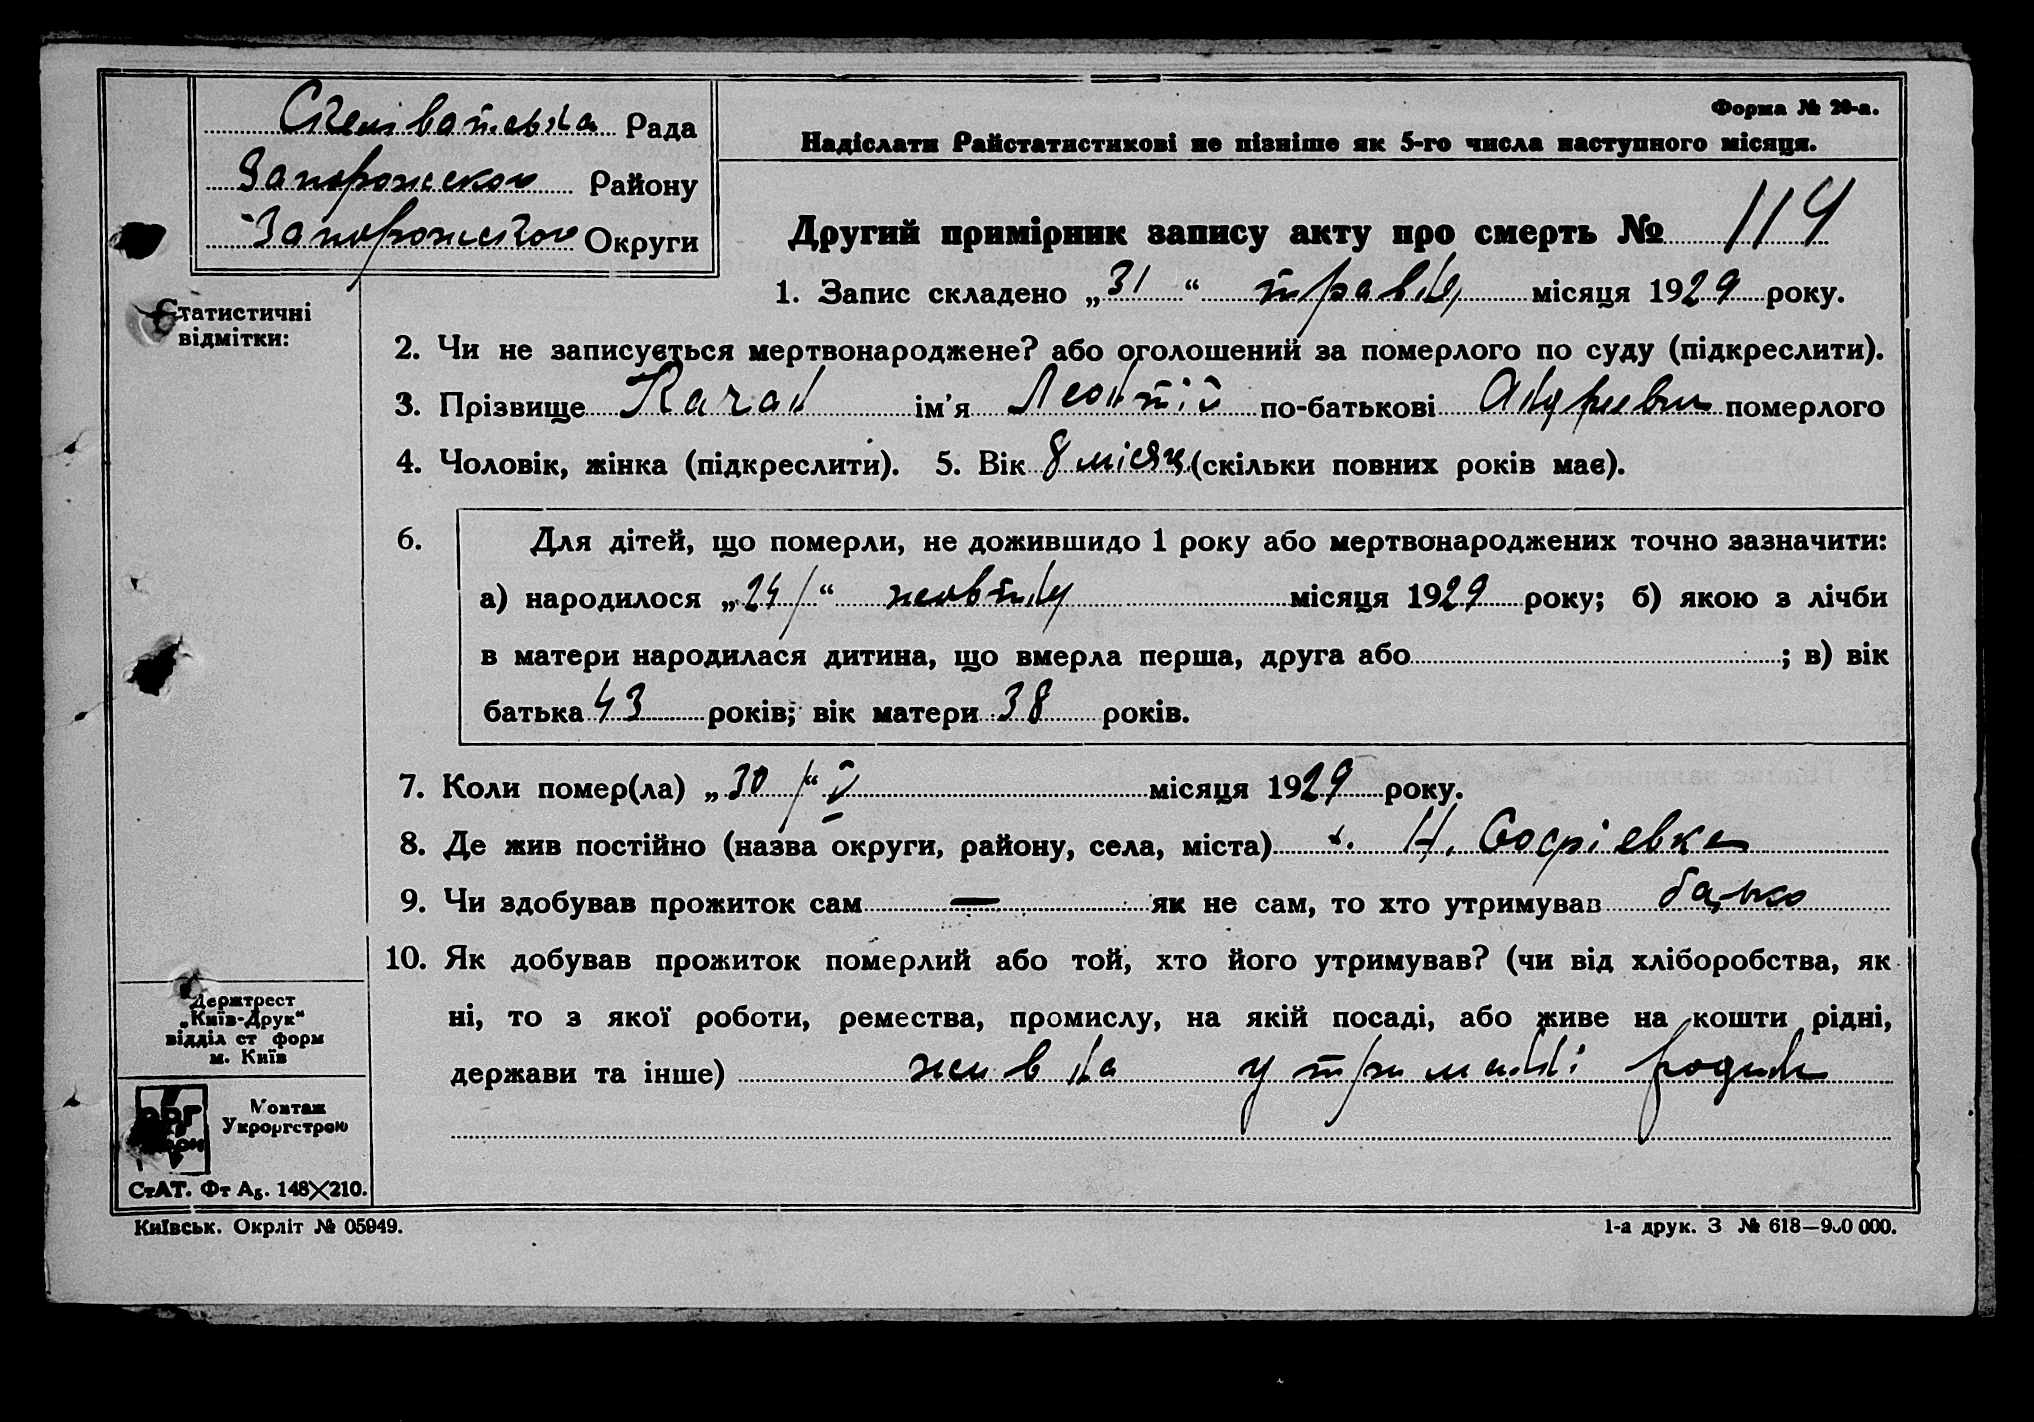 Скелеватська Рада
Запорожского Району
Запорожского Округи
Форма № 20-а.
Надіслати Райстатистикові не пізніше як 5-го числа наступного місяця.
Другий примірник запису акту про смерть № 114
1. Запис складено „31“ травня місяця 1929 року.
Статистичні
відмітки:
2. Чи не записується мертвонароджене? або оголошений за померлого по суду (підкреслити).
3. Прізвище Качан ім'я Леонтій по-батькові померлого
4. Чоловік, жінка (підкреслити). 5. Вік 8 місяц. (скільки повних років має).
6. Для дітей, що померли, не дожившидо 1 року або мертвонароджених точно зазначити:
а) народилося „24“ жовтня місяця 1929 року; б) якою з лічби
в матери народилася дитина, що вмерла перша, друга або ; в) вік
батька 43 років; вік матери 38 років.
7. Коли помер(ла) „30“ V місяця 1929 року.
8. Де жив постійно (назва округи, району, села, міста) х. Н. Софіевка
9. Чи здобував прожиток сам — як не сам, то хто утримував батько
10. Як добував прожиток померлий або той, хто його утримував? (чи від хліборобства, як
ні, то з якої роботи, ремества, промислу, на якій посаді, або живе на кошти рідні,
держави та інше) жив на утриманні родини
Держтрест
„Київ-Друк“
відділ ст форм
м. Київ
Монтаж
Укроргстрою
СтАТ. Фт А₅. 148×210.
Київськ. Окрліт № 05949.
1-а друк. З № 618—900 000.